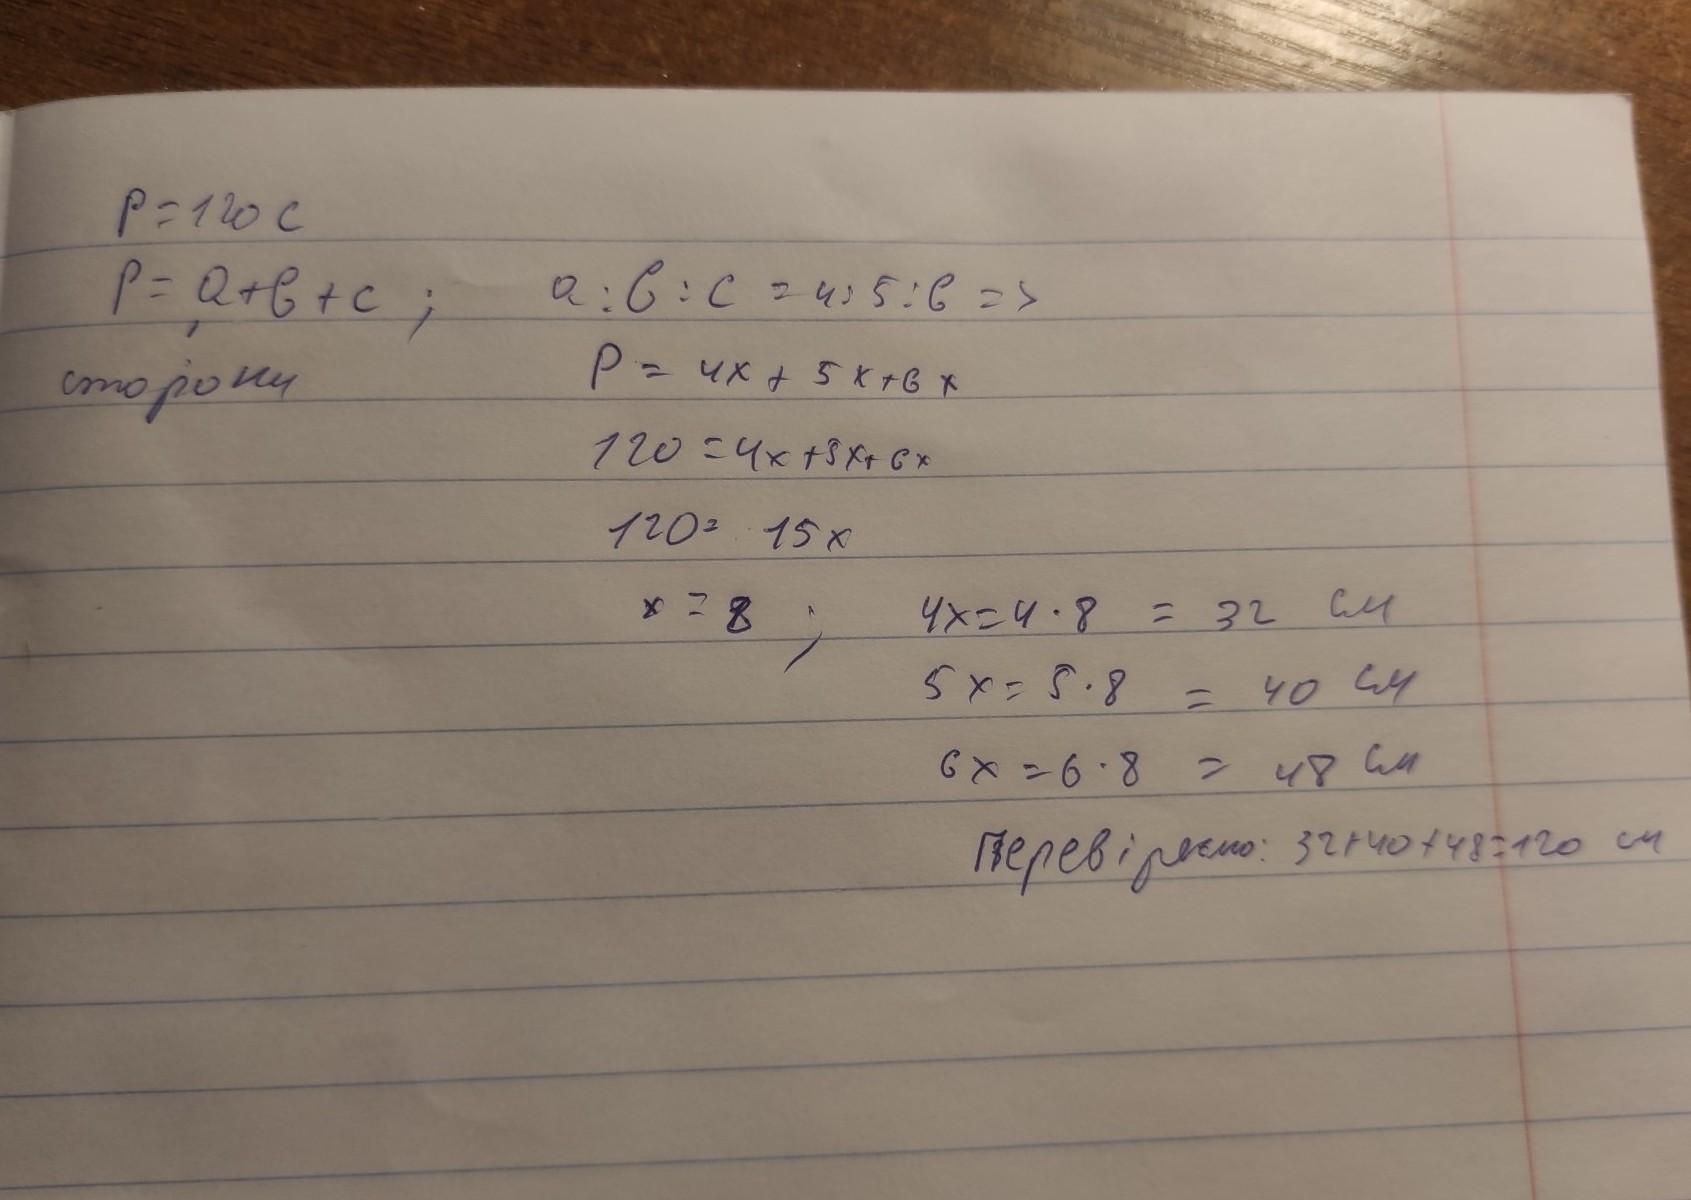 P=120 с
P= a+b+c ; a:b:c = 4:5:6 =>
сторони P = 4x + 5x+6x
120 =4x+5x+6x
120= 15x
x = 8 ; 4x=4·8 = 32 см
5x= 5·8 = 40 см
6x =6·8 = 48 см
Перевіряємо: 32+40+48=120 см